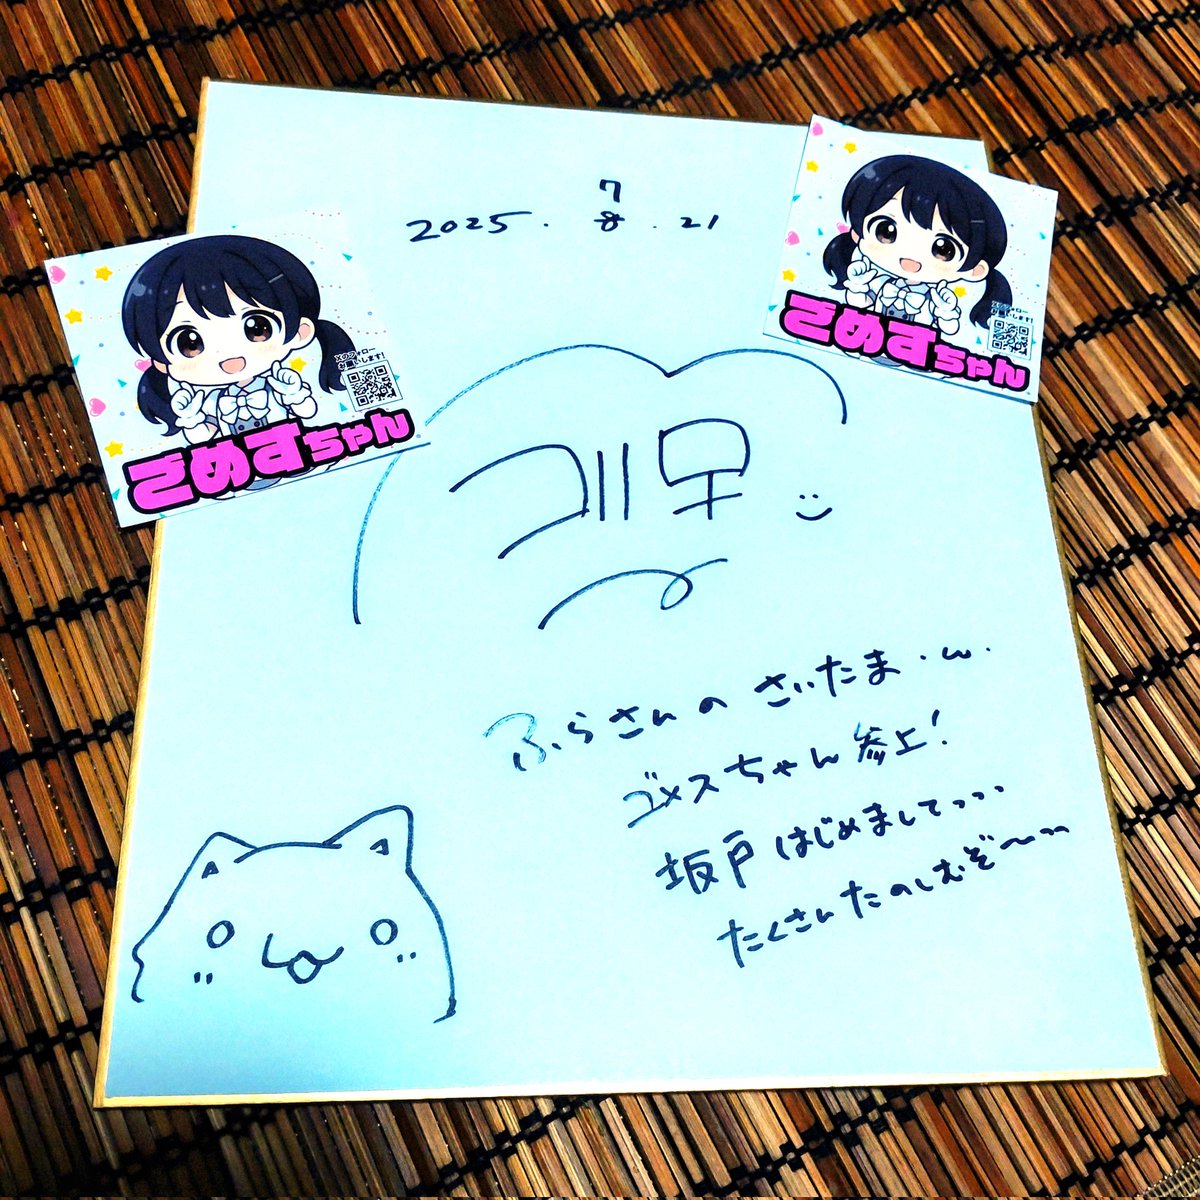 7
2025. 8 .21
Xのフォロー
お願いします!
ごめすちゃん
Xのフォロー
お願いします!
ごめすちゃん
ふらさんの さいたま・ω・
ゴメスちゃん 参上!
坂戸 はじめまして
たくさん たのしむぞ〜